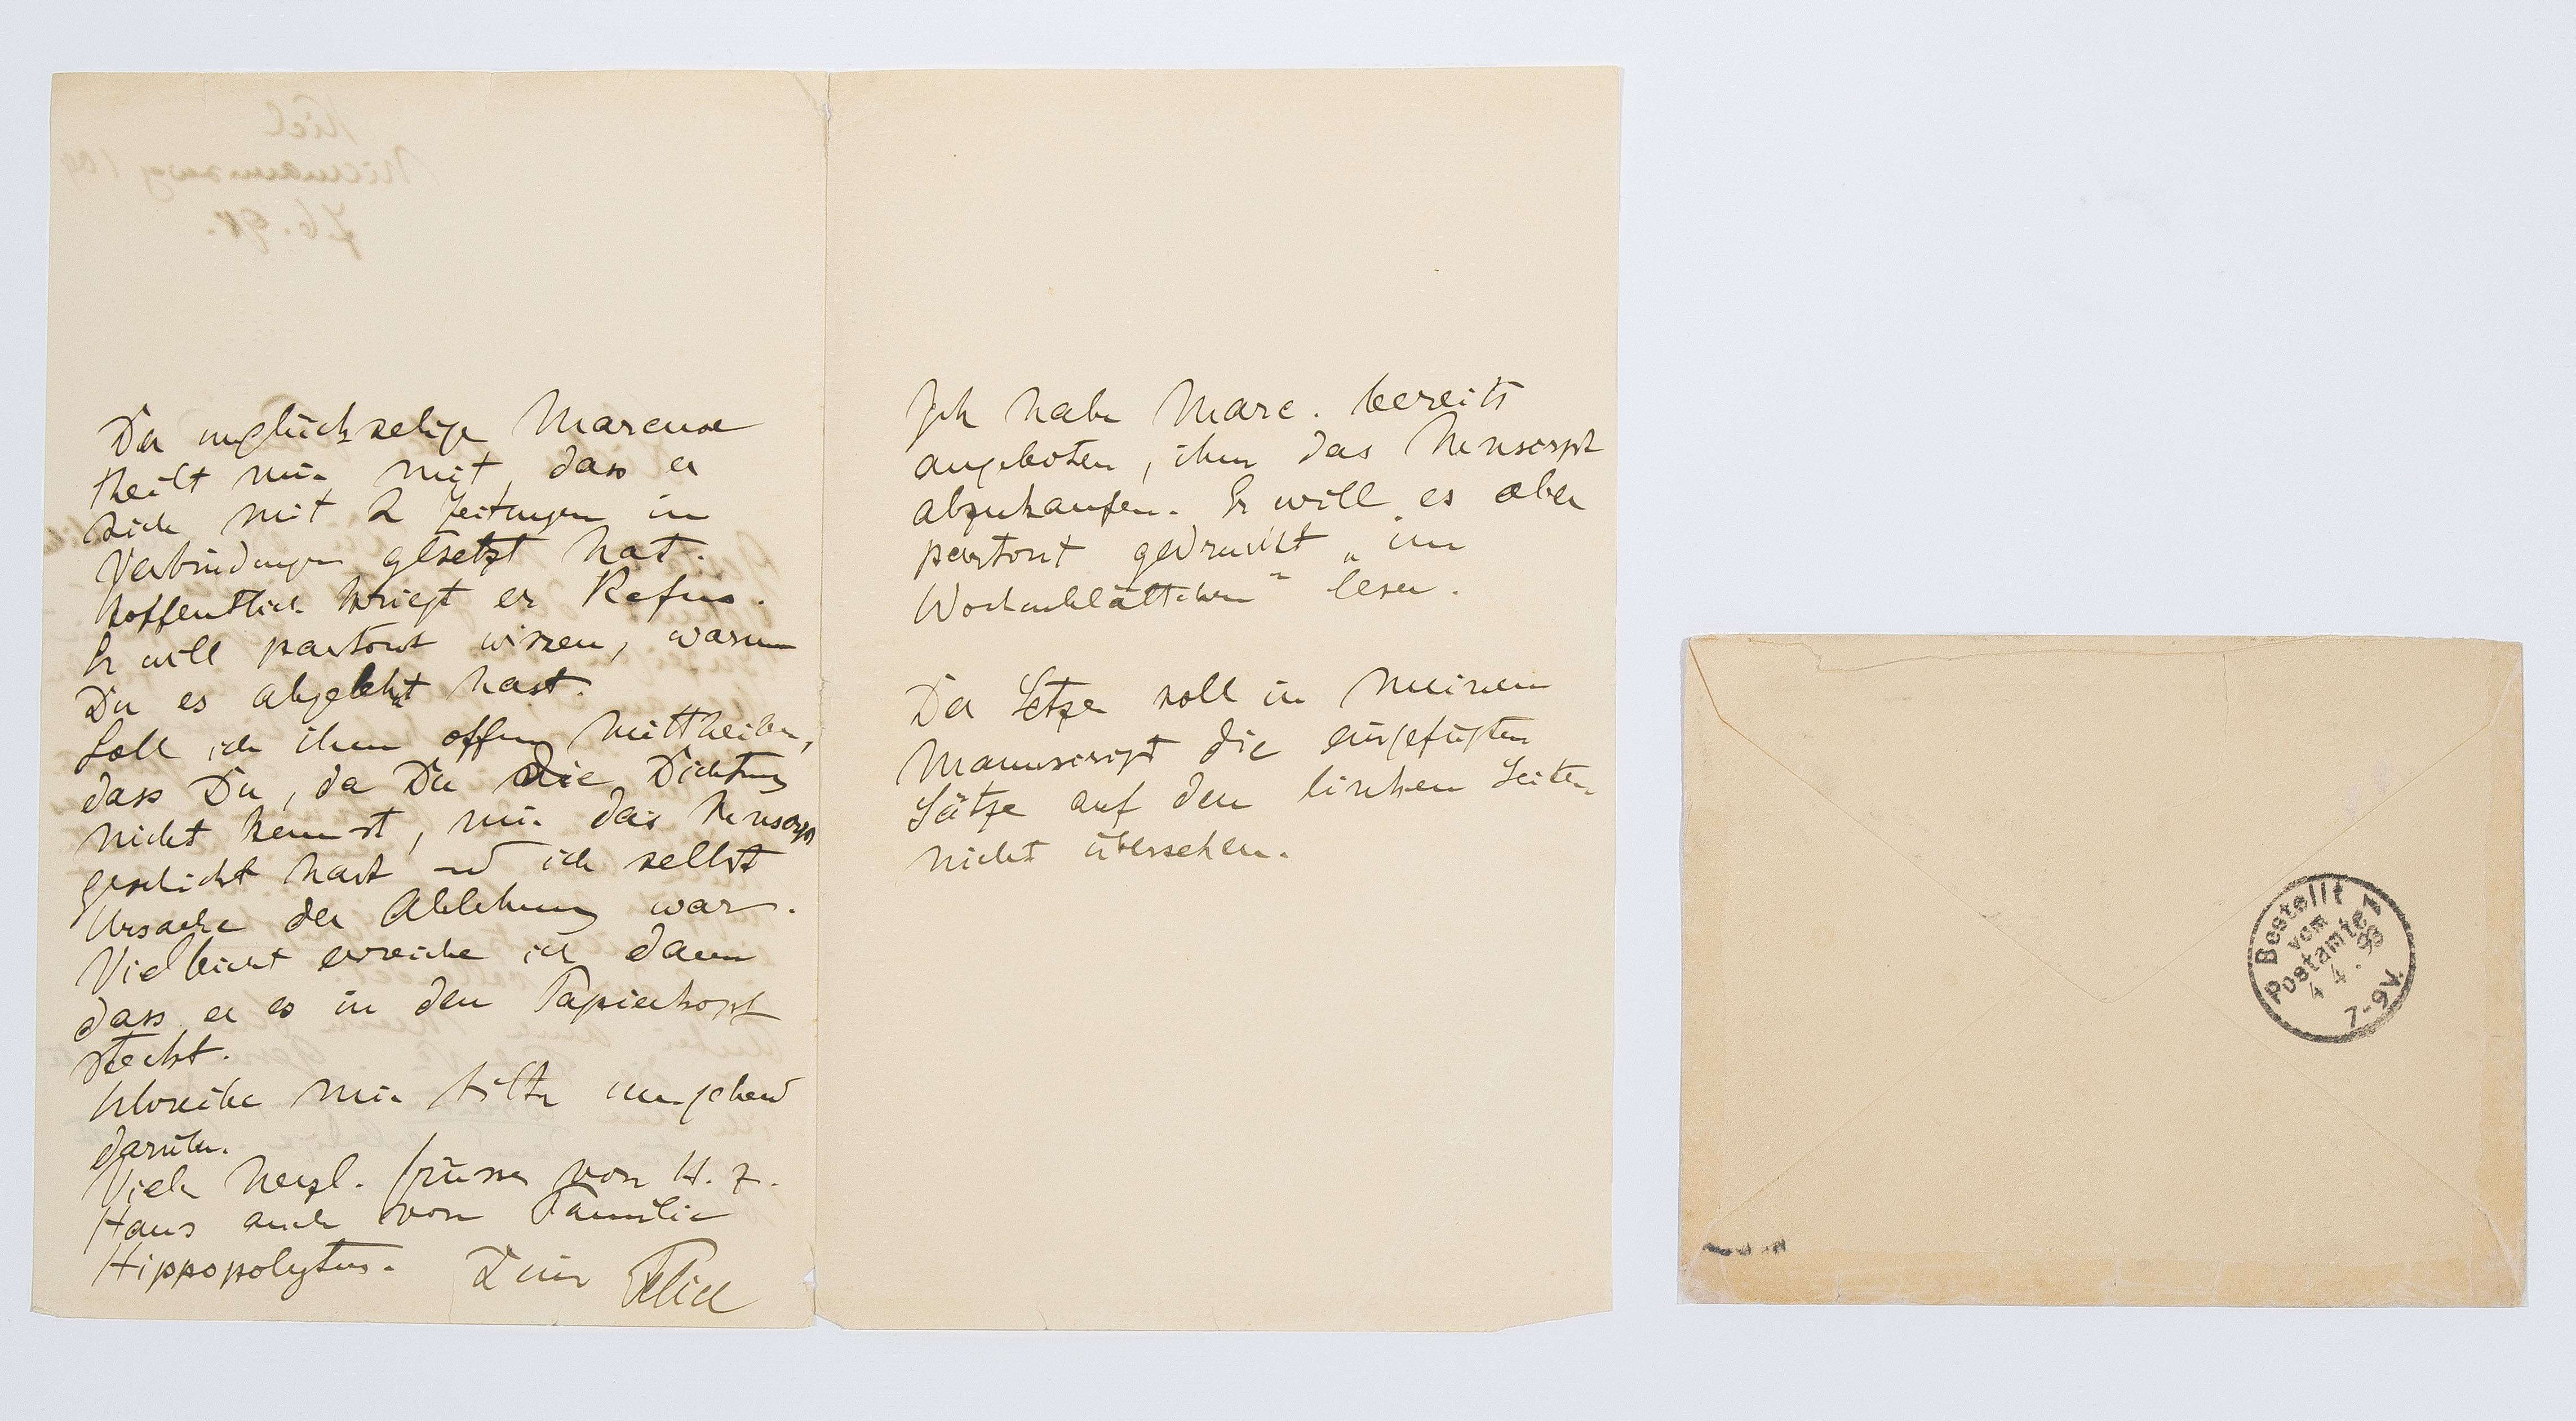 Der unglückselige Marcuse
theilt mir mit, dass er
sich mit 2 Zeitungen in
Verbindungen gesetzt hat.
hoffentlich kriegt er Refus.
Er will partout wissen, warum
Du es abgelehnt hast.
Soll ich ihm offen mittheilen,
dass Du, da Du die Dichtung
nicht kennst, mir das Mnscrpt
geschickt hast und ich selbst
Ursache der Ablehnung war.
Vielleicht erreiche ich dann
dass er es in den Papierkorb
steckt.
Schreibe mir bitte umgehend
darüber.
Viele herzl. Grüsse von H. z.
Haus auch von Familie
Hippopolytus. Dein Felix
Ich habe Marc. bereits
angeboten, ihm das Mnscrpt
abzukaufen. Er will es aber
partout gedruckt „im
Wochenblättchen“ lesen.
Der Setzer soll in meinem
Manuscript die eingefügten
Sätze auf den linken Seiten
nicht übersehen.
Kiel
Niemannsweg
Bestellt
vom
Postamte
4 4. 98
7-9V.